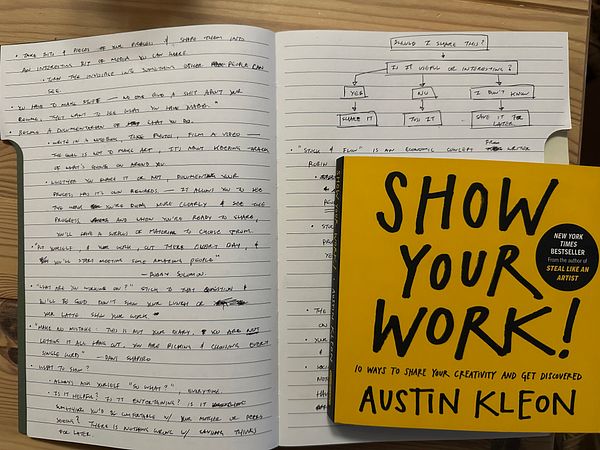 • TAKE BITS & PIECES OF YOUR PROCESS & SHAPE THEM INTO
AN INTERESTING BIT OF MEDIA YOU CAN SHARE.
• TURN THE INVISIBLE INTO SOMETHING OTHER PEOPLE CAN
SEE.
• YOU HAVE TO MAKE — NO ONE GIVES A SHIT ABOUT YOUR
RESUME, THEY WANT TO SEE WHAT YOU HAVE MADE."
• BECOME A DOCUMENTARIAN OF WHAT YOU DO.
• WRITE IN A NOTEBOOK, TAKE PHOTOS, FILM A VIDEO —
THE GOAL IS NOT TO MAKE ART, IT'S ABOUT KEEPING TRACK
OF WHAT'S GOING ON AROUND YOU.
• WHETHER YOU SHARE IT OR NOT DOCUMENTING YOUR
PROCESS HAS IT'S OWN REWARDS — IT ALLOWS YOU TO SEE
THE WORK YOU'RE DOING MORE CLEARLY & SEE THE
PROGRESS AND WHEN YOU'RE READY TO SHARE,
YOU'LL HAVE A SURPLUS OF MATERIAL TO CHOOSE FROM.
"PUT YOURSELF, & YOUR WORK, OUT THERE EVERY DAY, &
YOU'LL START MEETING SOME AMAZING PEOPLE"
— BOBBY SOLOMON
• "WHAT ARE YOU WORKING ON?" STICK TO THAT QUESTION &
YOU'LL BE GOOD. DON'T SHOW YOUR LUNCH OR
YOUR LATTE. SHOW YOUR WORK.
• "MAKE NO MISTAKE: THIS IS NOT YOUR DIARY. YOU ARE NOT
LETTING IT ALL HANG OUT. YOU ARE PICKING & CHOOSING EVERY
SINGLE WORD" — DANI SHAPIRO
• WHAT TO SHOW?
• ALWAYS ASK YOURSELF "SO WHAT?" EVERYTIME.
• IS IT HELPFUL? IS IT ENTERTAINING? IS IT
SOMETHING YOU'D BE COMFORTABLE W/ YOUR MOTHER OR BOSS
SEEING? THERE IS NOTHING WRONG W/ SAVING THINGS
FOR LATER.
SHOULD I SHARE THIS?
IS IT USEFUL OR INTERESTING?
YES
NO
I DON'T KNOW
SHARE IT
TOSS IT
SAVE IT FOR
LATER
• "STOCK & FLOW" IS AN ECONOMIC CONCEPT WRITER
ROBIN
SHOW
YOUR
WORK!
NEW YORK
TIMES
BESTSELLER
From the author of
STEAL LIKE AN
ARTIST
10 WAYS TO SHARE YOUR CREATIVITY AND GET DISCOVERED
AUSTIN KLEON